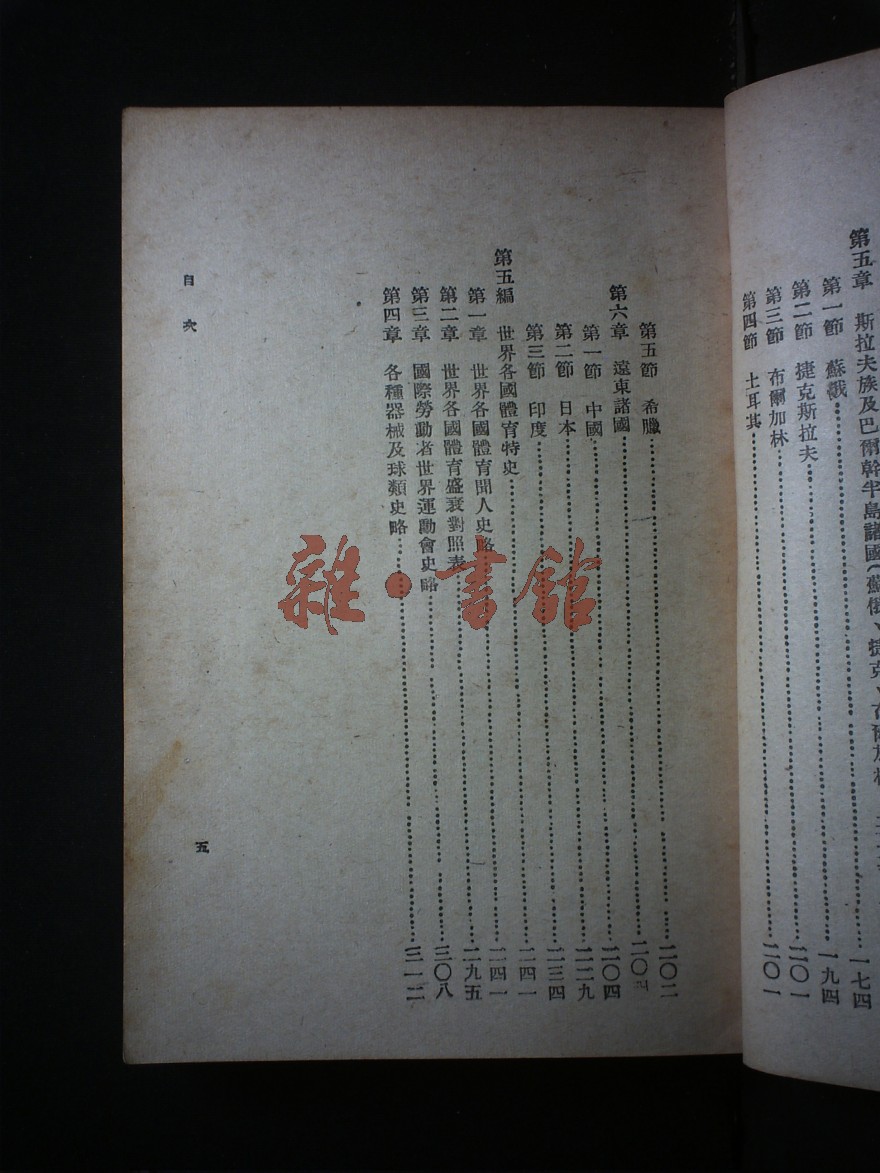 第五章 斯拉夫族及巴爾幹半島諸國(蘇俄、捷克、
第一節 蘇俄……一七四
第二節 捷克斯拉夫……一九四
第三節 布爾加林……二〇一
第四節 土耳其……二〇一
第五節 希臘……二〇二
第六章 遠東諸國……二〇四
第一節 中國……二〇四
第二節 日本……二二九
第三節 印度……二三四
第五編 世界各國體育特史……二四一
第一章 世界各國體育聞人史略……二四一
第二章 世界各國體育盛衰對照表……二九五
第三章 國際勞動者世界運動會史略……三〇八
第四章 各種器械及球類史略……三一二
目次
五
雜·書館